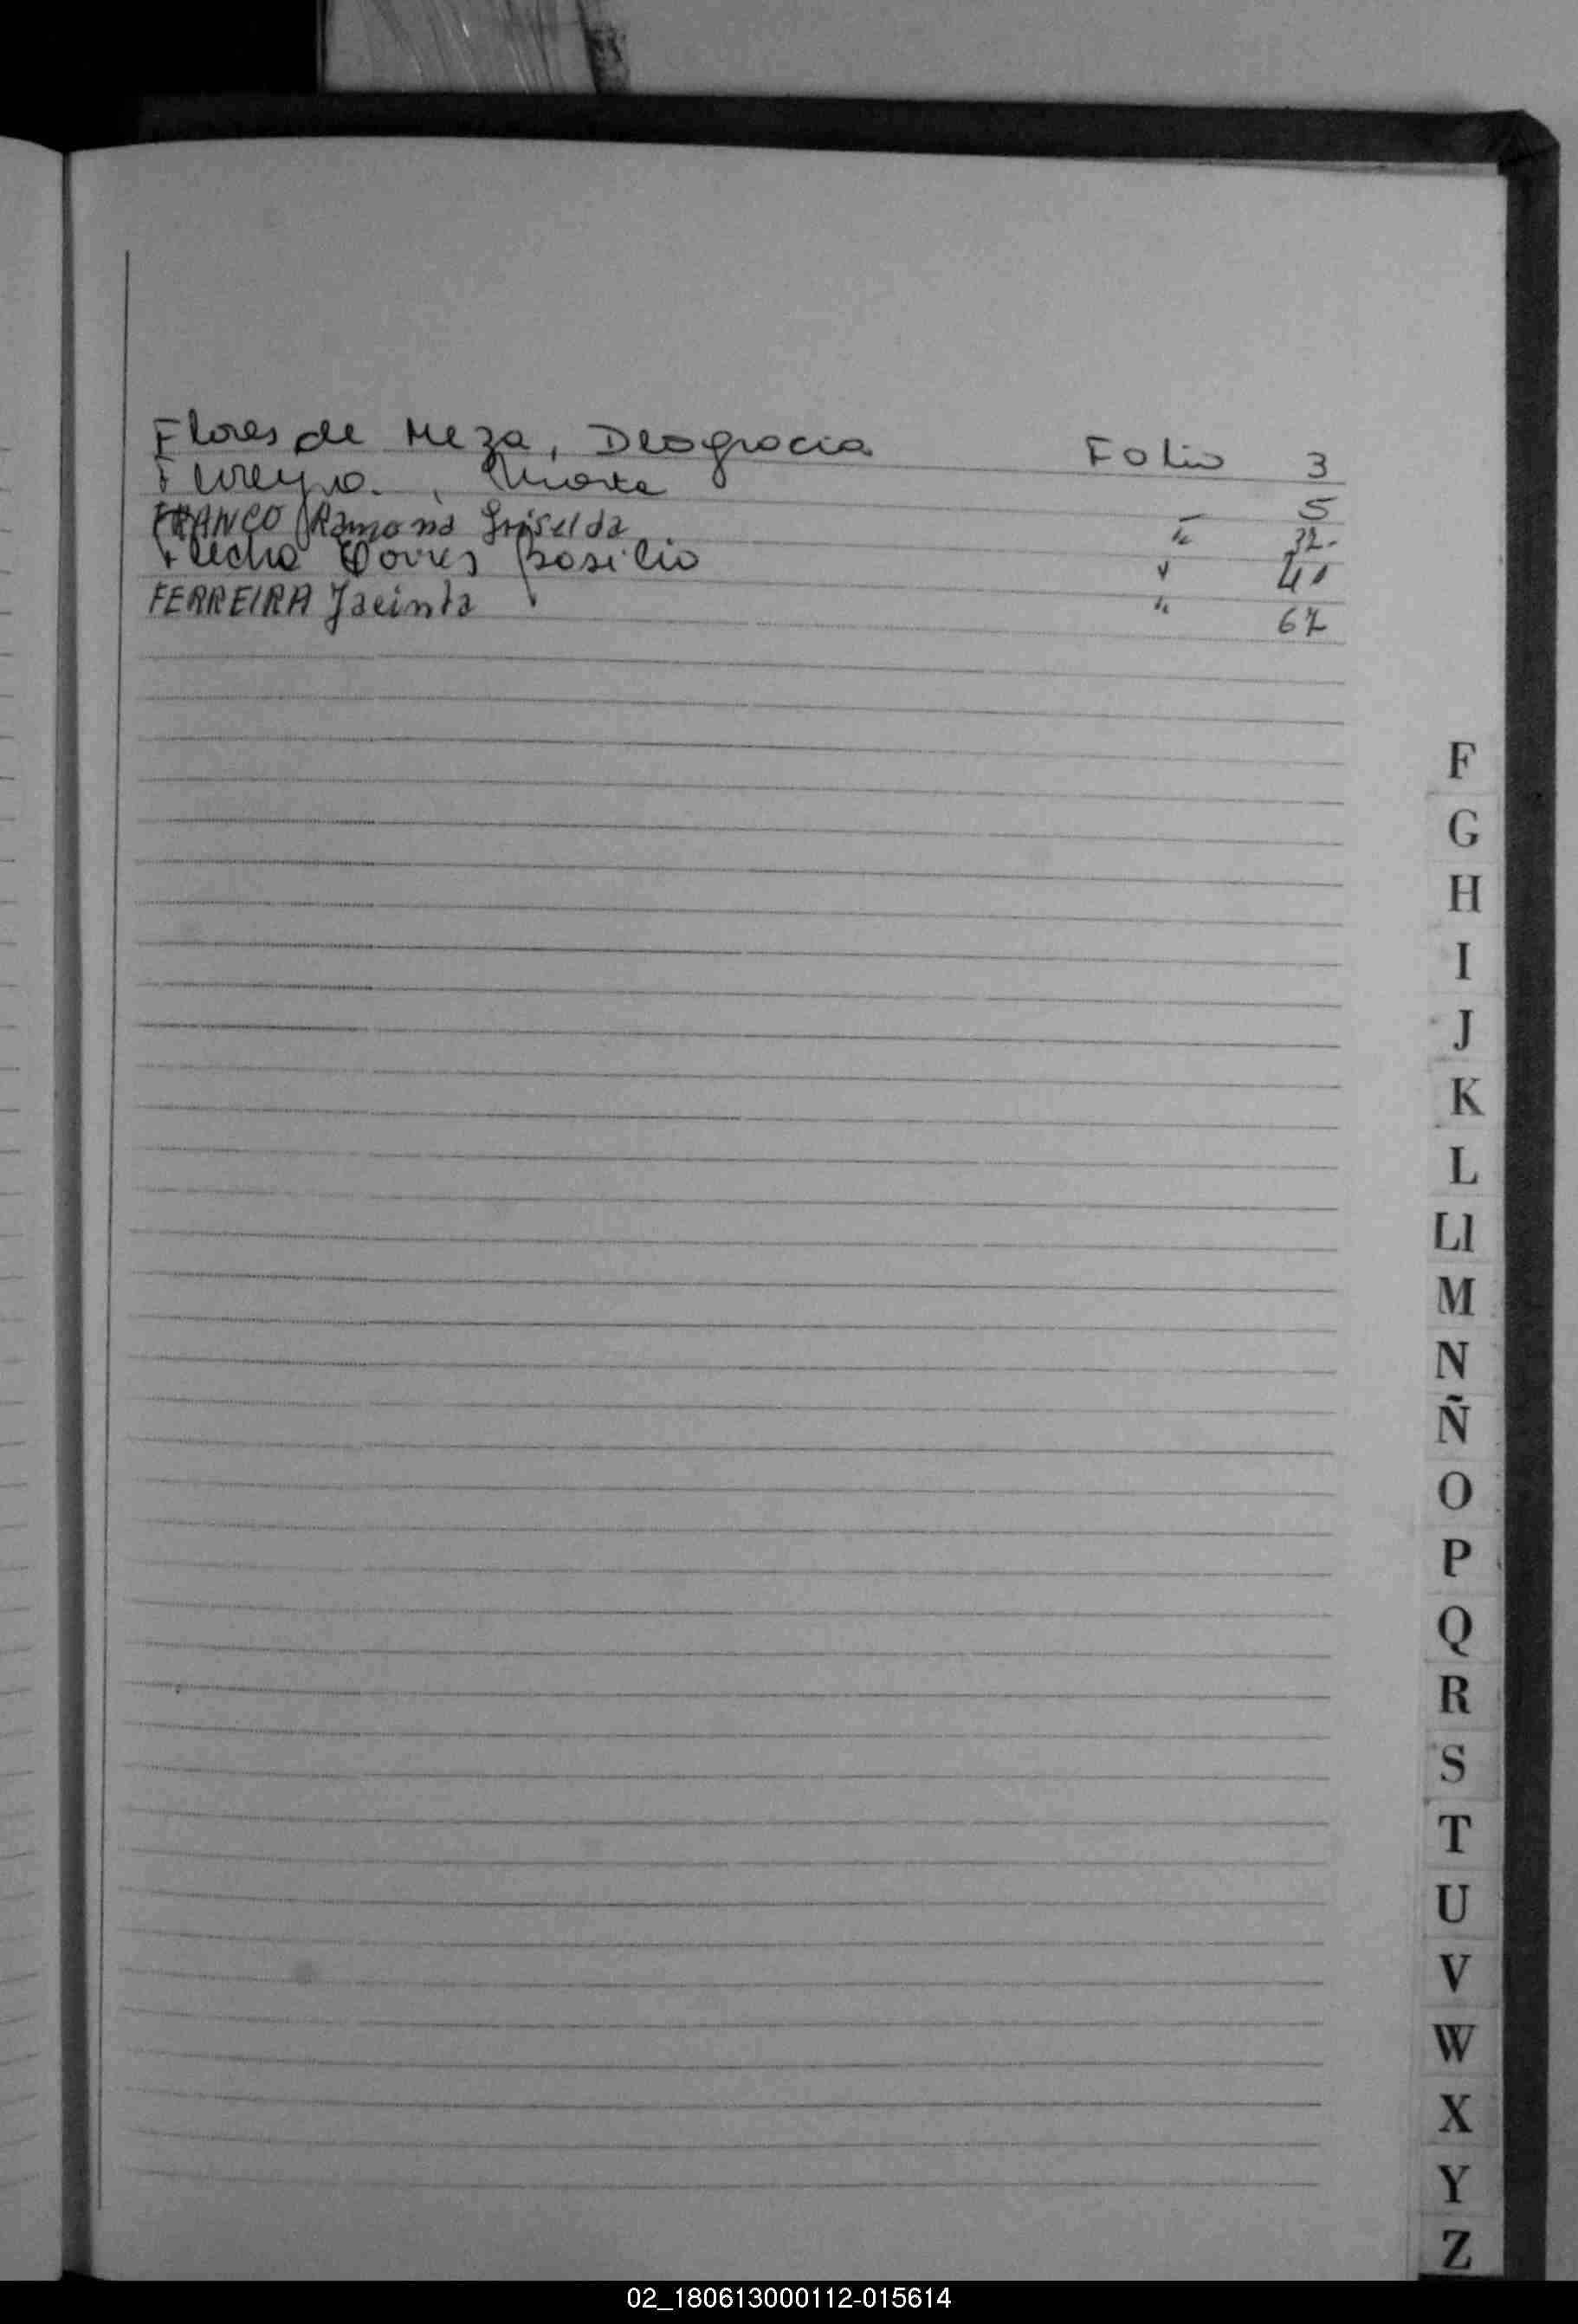 Flores de Meza, Deogracia Folio 3
Ferreyra, Marta — 5
FRANCO Ramona Griselda " 32-
Flecha Torres Basilio " 41
FERREIRA Jacinta " 67
F
G
H
I
J
K
L
Ll
M
N
Ñ
O
P
Q
R
S
T
U
V
W
X
Y
Z
02_180613000112-015614